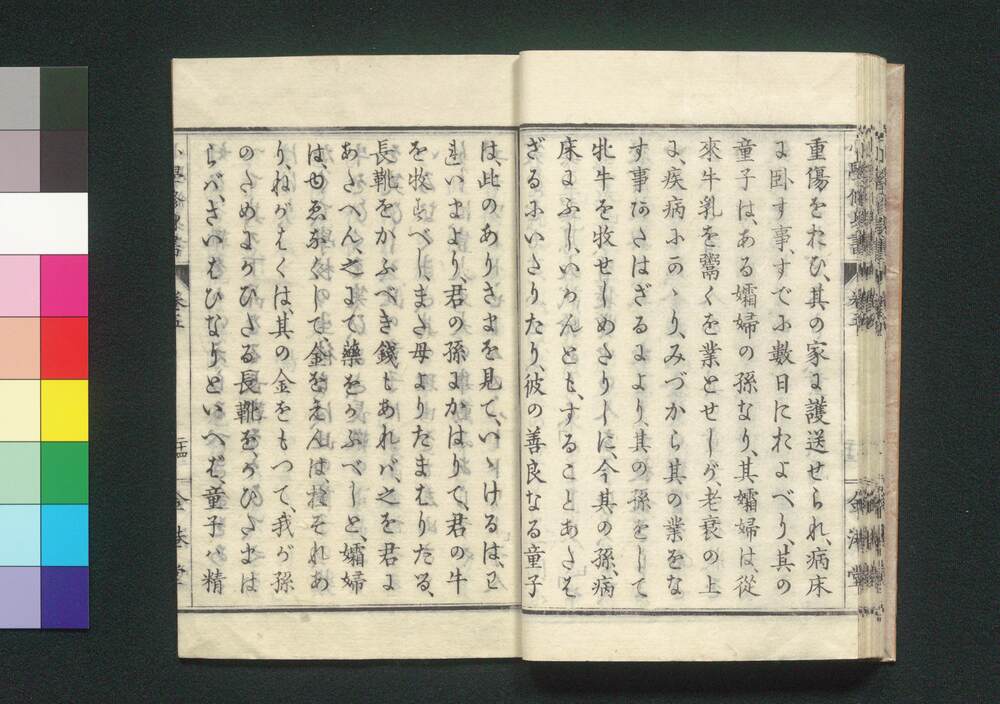 重傷をおひ、其の家に護送せられ、病床
に臥す事、すでに數日におよべり、其の
童子は、ある孀婦の孫なり、其孀婦は、從
來牛乳を鬻ぐを業とせしが、老衰の上
に、疾病にかゝり、みづから其の業をな
す事あたはざるにより、其の孫をして
牝牛を牧せしめたりしに、今其の孫、病
床にふし、いかんとも、することあたは
ざるにいたりたり、彼の善良なる童子
は、此のありさまを見て、いゝけるは、
いまより、君の孫にかはりて、君の牛
を牧すべし、また母よりたまはりたる、
長靴をかふべき錢もあれバ、之を君に
あたへん、之にて、藥をかふべしと、孀婦
は、
り、ねがはくは、其の金をもつて、我が孫
のためにかひたる長靴を、かひたまは
らバ、さいはひなりといへば、童子ハ精
小學修身書
卷五
金港堂